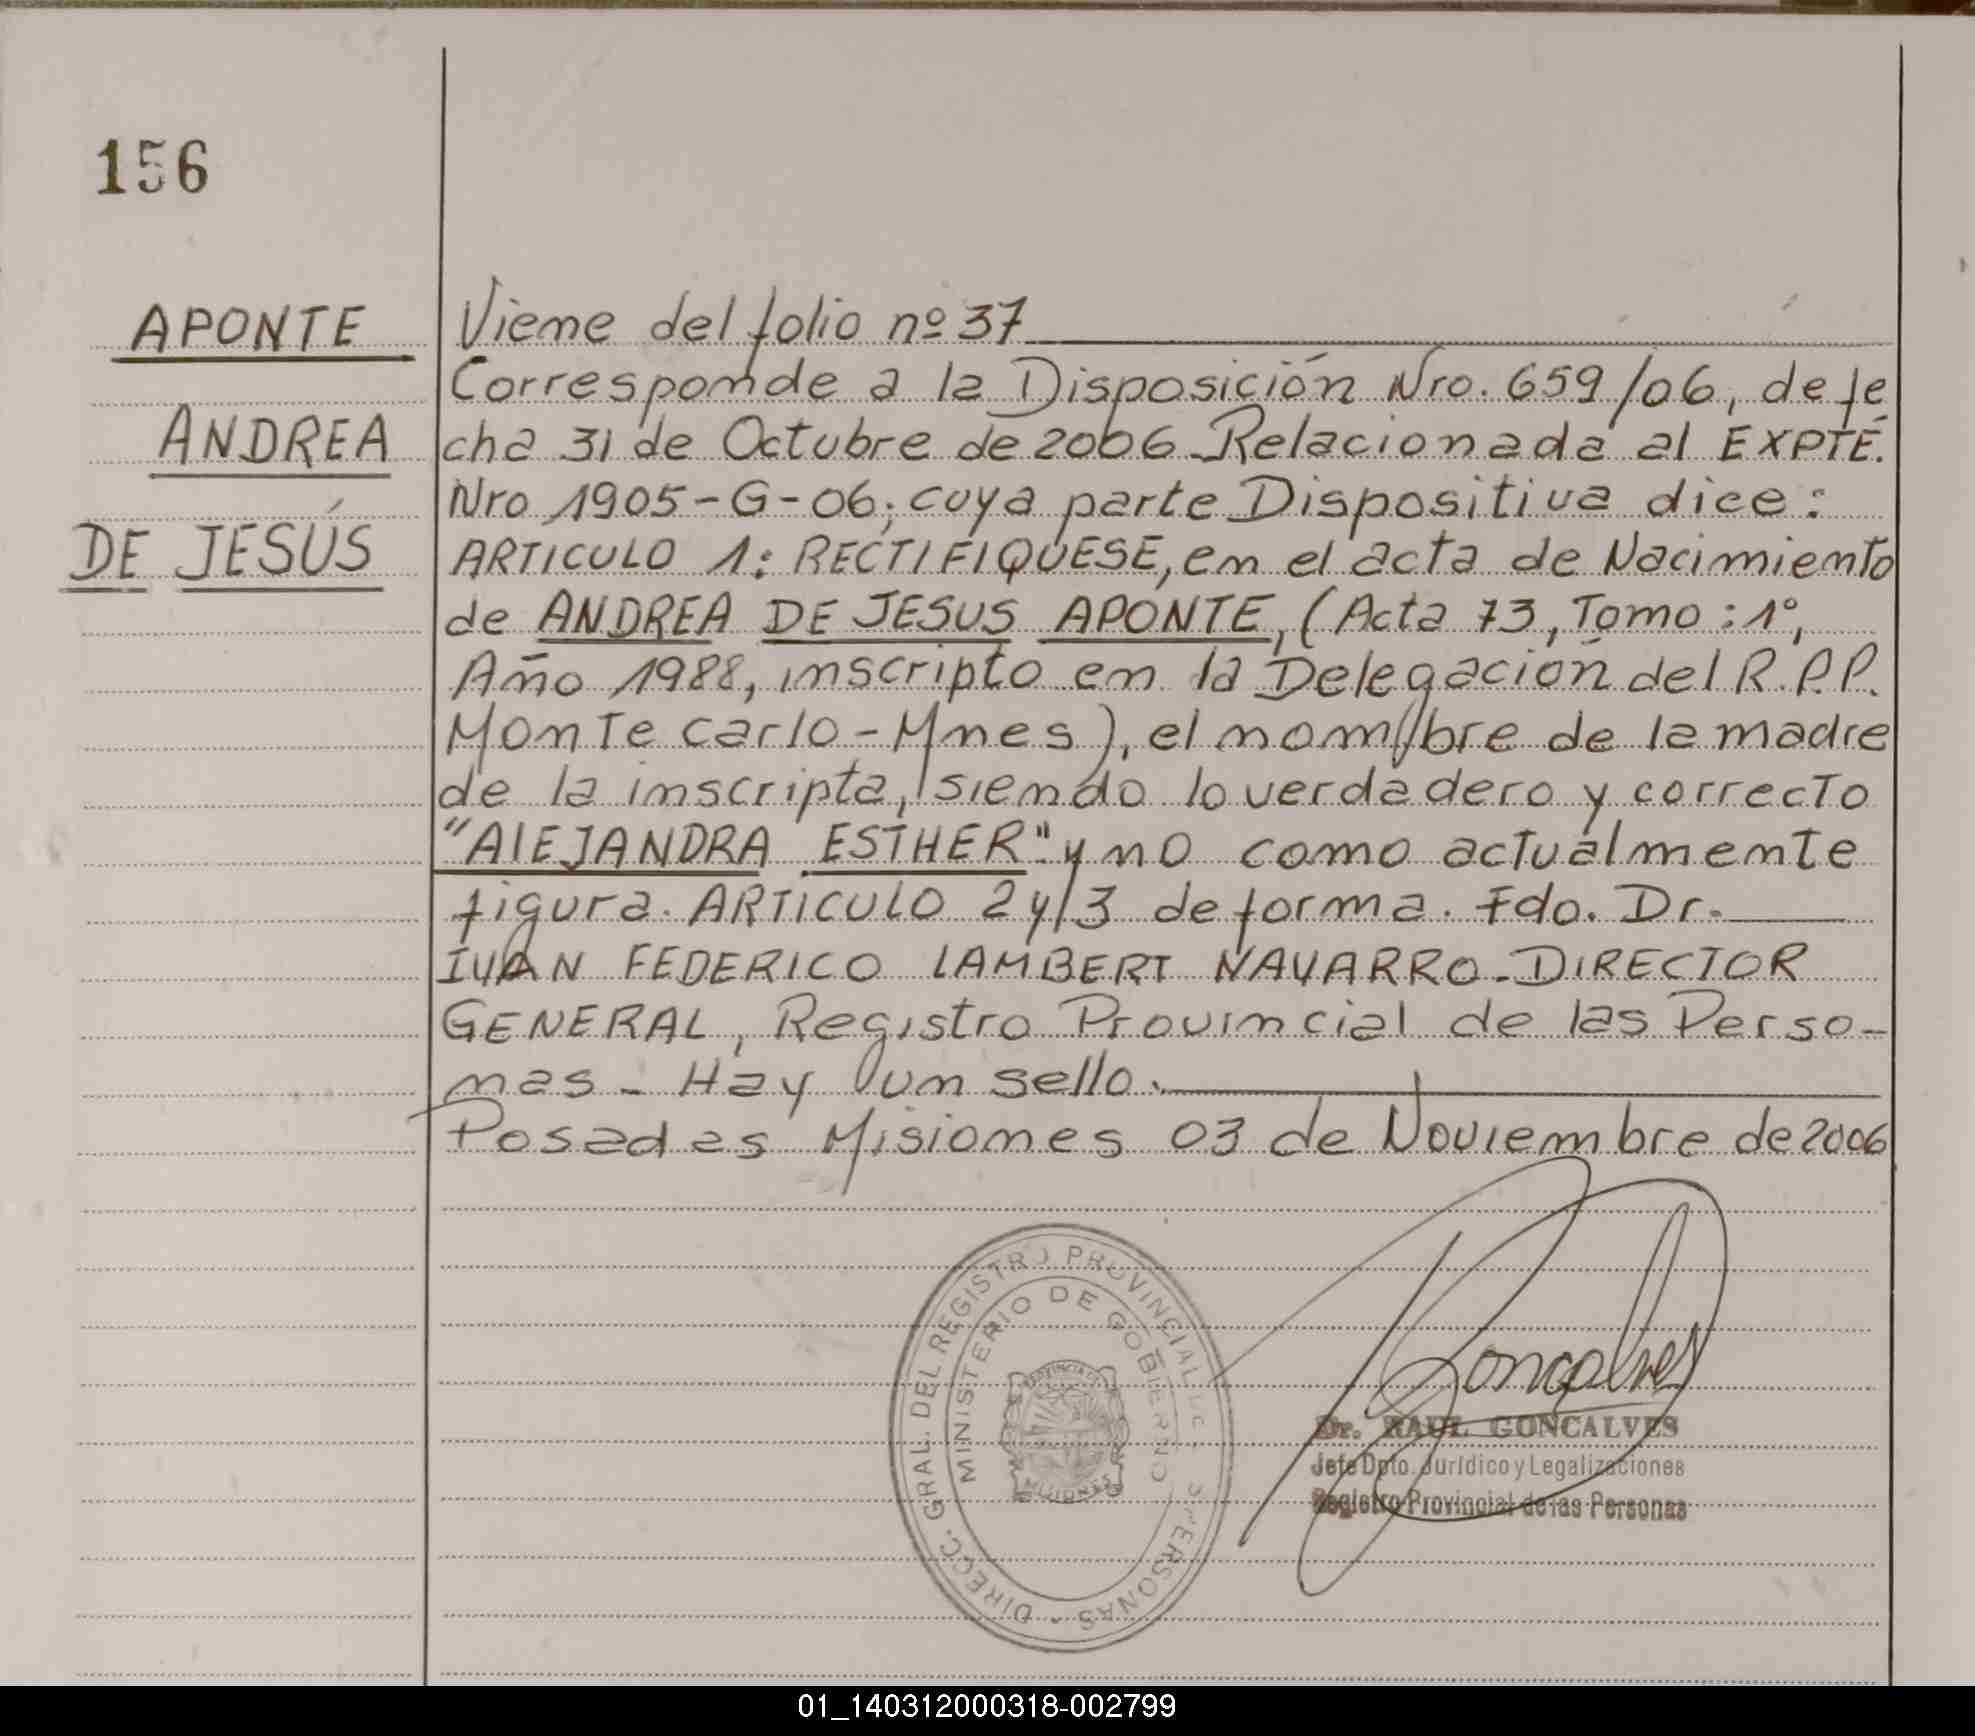 156
APONTE
ANDREA
DE JESÚS
Viene del folio nº 37
Corresponde a la Disposición Nro. 659/06, de fe
cha 31 de Octubre de 2006. Relacionada al EXPTE.
Nro 1905-G-06; cuya parte Dispositiva dice:
ARTICULO 1: RECTIFIQUESE, en el acta de Nacimiento
de ANDREA DE JESUS APONTE, (Acta 73, Tomo: 1º,
Año 1988, inscripto en la Delegación del R.P.P.
Monte carlo-Mnes), el nombre de la madre
de la inscripta, siendo lo verdadero y correcto
"AlEJANDRA ESTHER" y no como actualmente
figura. ARTICULO 2 y 3 de forma. Fdo. Dr.
IVAN FEDERICO LAMBERT NAVARRO-DIRECTOR
GENERAL, Registro Provincial de las Perso-
nas- Hay un sello.
Posadas Misiones 03 de Noviembre de 2006
DIRECC. GRAL. DEL REGISTRO PROVINCIAL DE PERSONAS
MINISTERIO DE GOBIERNO
PROVINCIA
MISIONES
Goncalves
Dr. RAUL GONCALVES
Jefe Dpto. Jurídico y Legalizaciones
Registro Provincial de las Personas
01_140312000318-002799